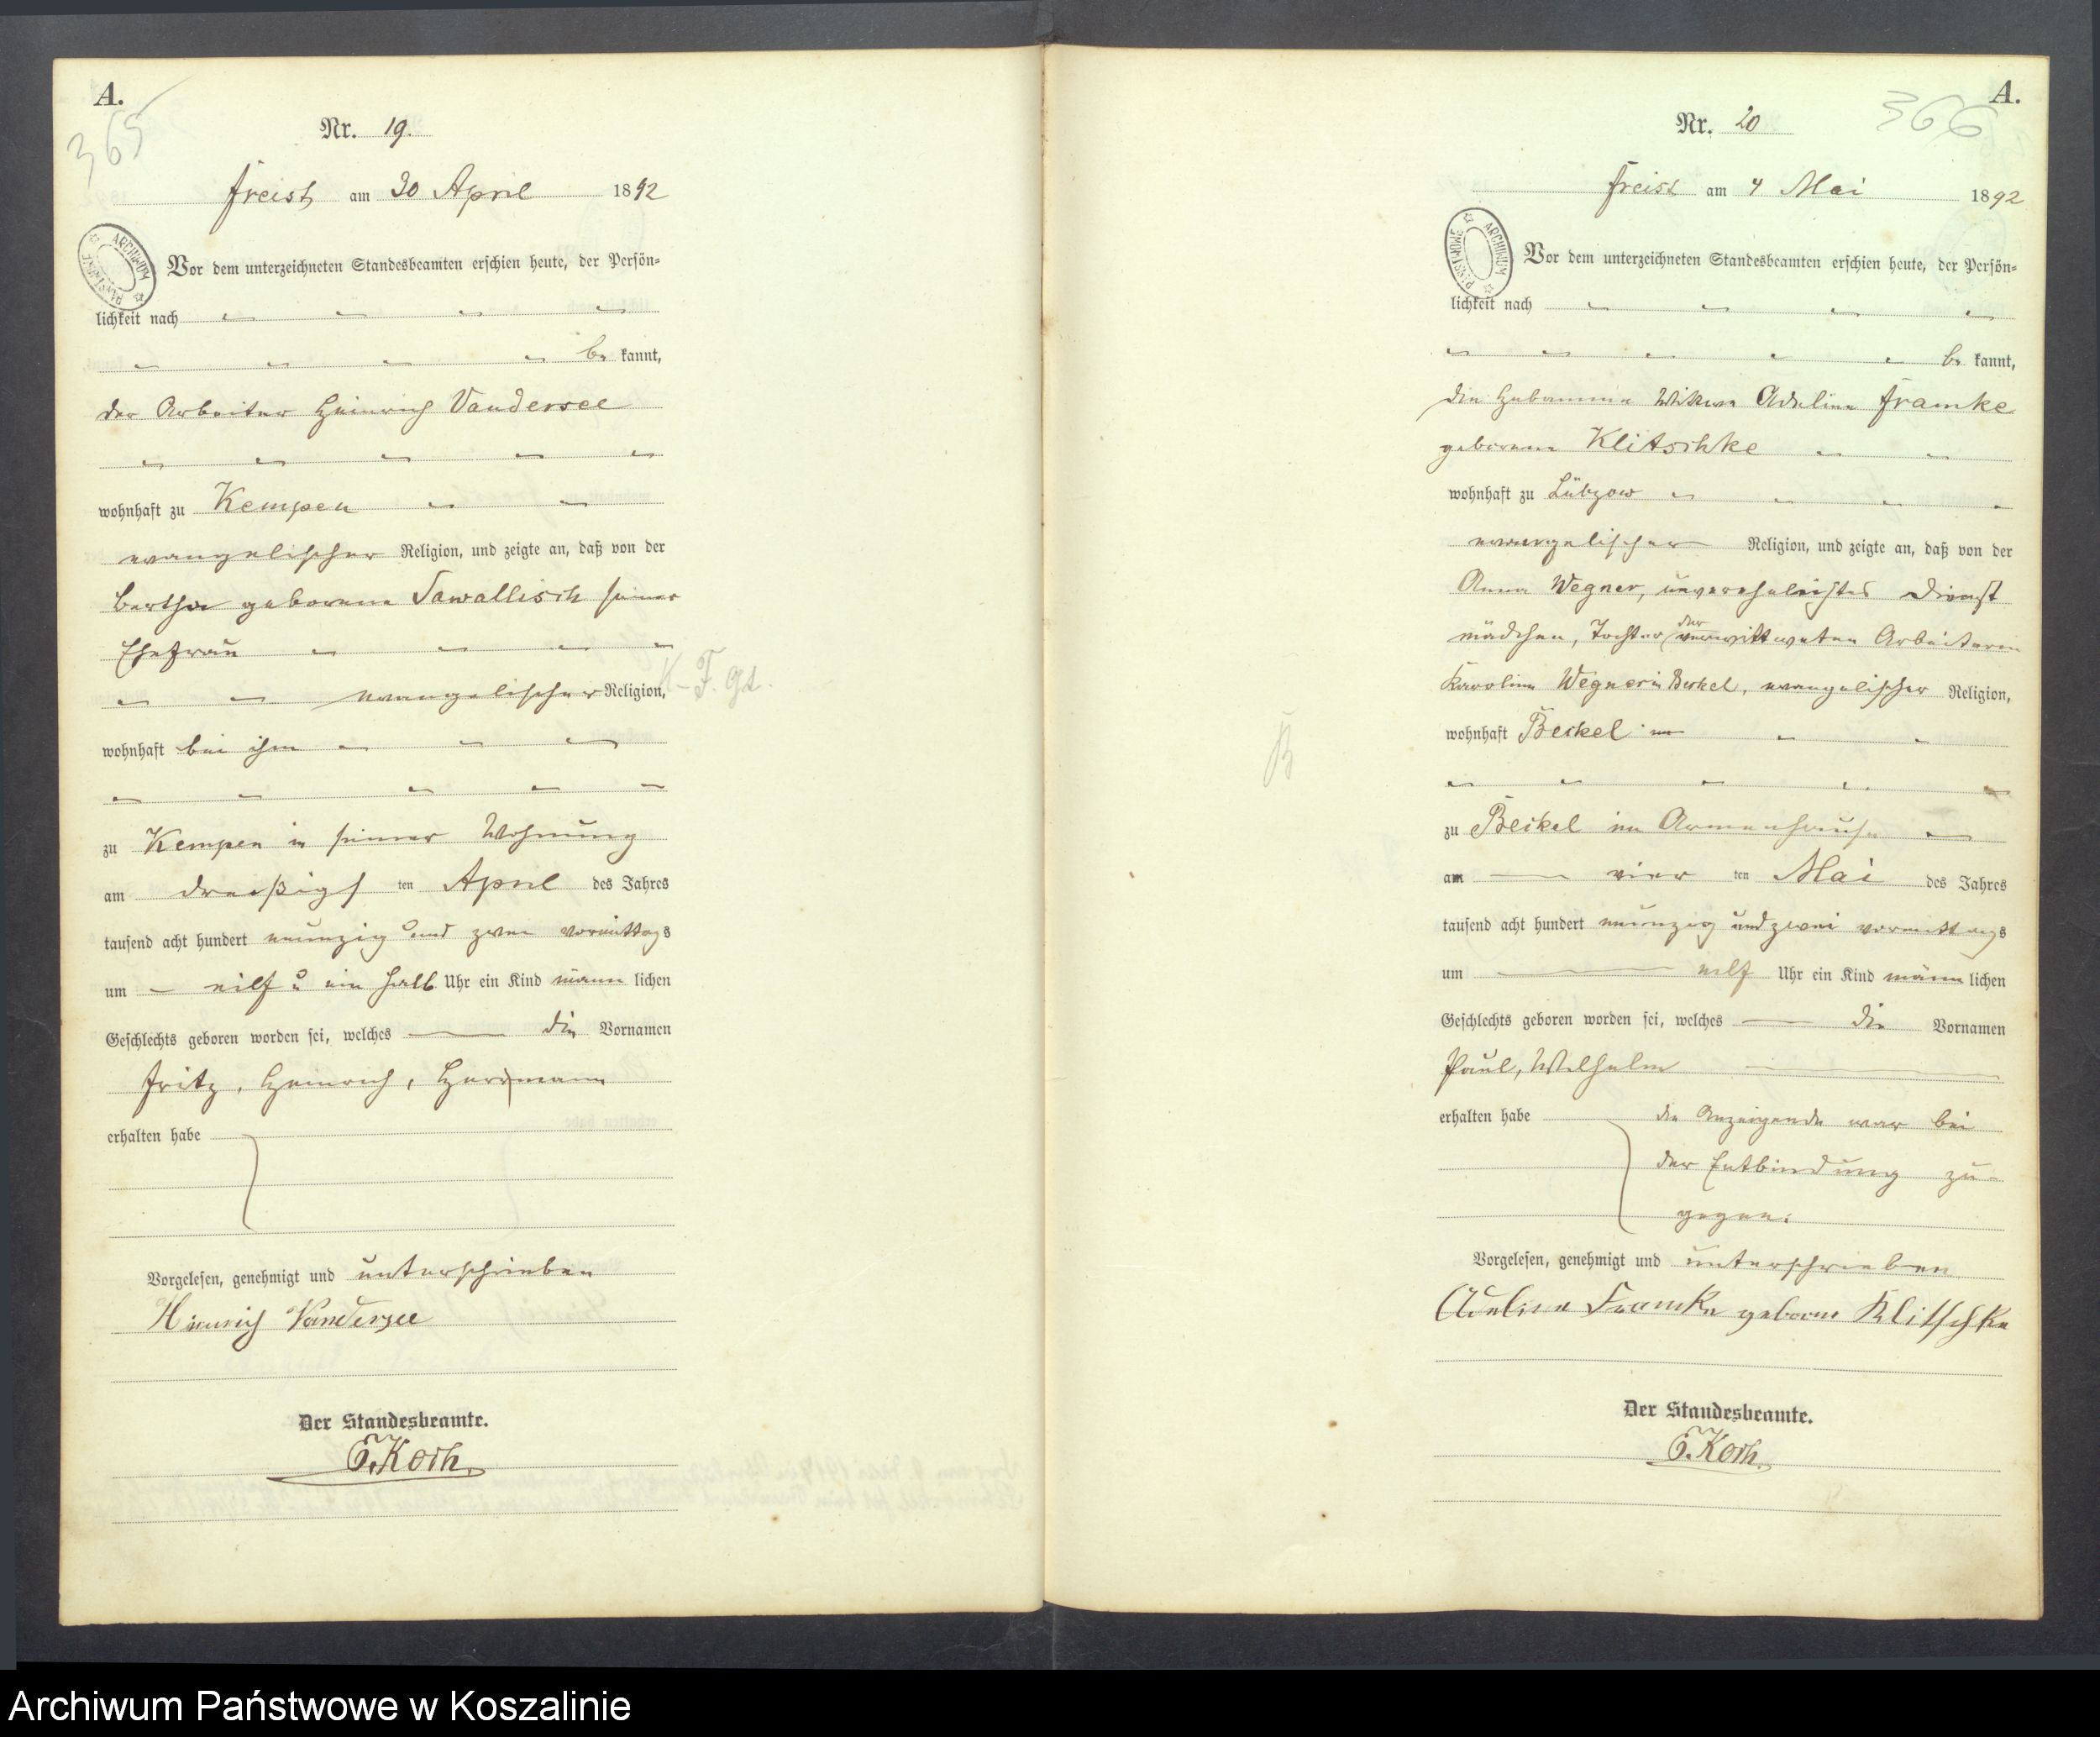 A.
365
Nr. 19.
Freist am 30 April 1892
ARCHIWUM PAŃSTWOWE
Vor dem unterzeichneten Standesbeamten erschien heute, der Persön-
lichkeit nach
be kannt,
der Arbeiter Heinrich Vandersee
wohnhaft zu Kempen
evangelischer Religion, und zeigte an, daß von der
Bertha geborene Sawallisch seiner
Ehefrau
evangelischer Religion,
wohnhaft bei ihm
zu Kempen in seiner Wohnung
am dreißigs ten April des Jahres
tausend acht hundert neunzig und zwei vormittags
um eilf u ein halb Uhr ein Kind männ lichen
Geschlechts geboren worden sei, welches die Vornamen
Fritz, Heinrich, Herrmann
erhalten habe
Vorgelesen, genehmigt und unterschrieben
Heinrich Vandersee
Der Standesbeamte.
E. Koch.
A.
366
Nr. 20
Freist am 4 Mai 1892
ARCHIWUM PAŃSTWOWE
Vor dem unterzeichneten Standesbeamten erschien heute, der Persön-
lichkeit nach
be kannt,
die Hebamme Wittwe Adeline Framke
geborene Klitschke
wohnhaft zu Lübzow
evangelischer Religion, und zeigte an, daß von der
Anna Wegner, unverehelichtes Dienst
mädchen, Tochter der verwittweten Arbeiterin
Karoline Wegner in Beckel, evangelischer Religion,
wohnhaft Beckel
zu Beckel im Armenhause
am vier ten Mai des Jahres
tausend acht hundert neunzig und zwei vormittags
um eilf Uhr ein Kind männ lichen
Geschlechts geboren worden sei, welches die Vornamen
Paul, Wilhelm
erhalten habe die Anzeigende war bei
der Entbindung zu-
gegen.
Vorgelesen, genehmigt und unterschrieben
Adeline Framke geborne Klitschke
Der Standesbeamte.
E. Koch.
Archiwum Państwowe w Koszalinie